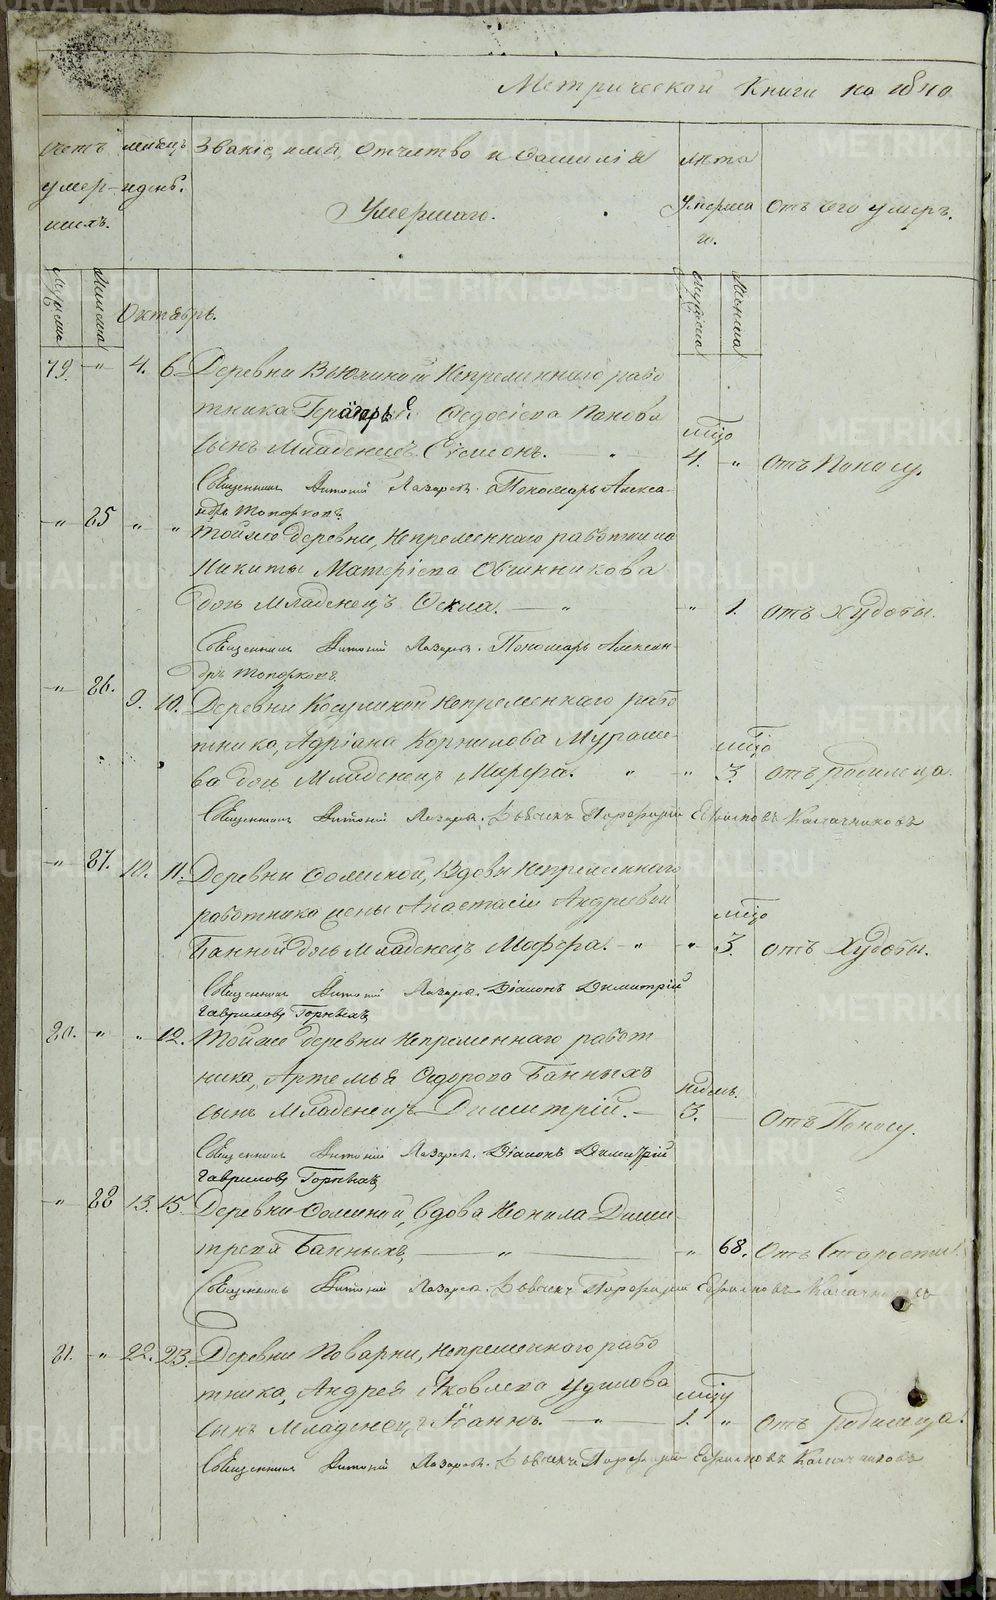 Метрической Книги на 1840
Счетъ умер-шихъ. мѣсяцъ и день. Званіе, имя, отчество и Фамилія Умершаго. лѣта Умерша го. отъ чего умеръ.
Мужеска Женска Мужеска Женска
Октябрь.
79. " 4. 6. Деревни Вьюхиной Непременнаго рабо
тника Федосіева Панова
сынъ Младенецъ Сімеонъ. — " мцо 4. " отъ Поносу.
Священникъ Антоній Лазаревъ. Пономарь Алекса-
ндръ Топорковъ.
" 85 " " Тойже деревни, Непременнаго работника
Никиты Матеріева Овчинникова
дочь Младенецъ Фекла. — " " 1. отъ Худобы.
Священникъ Антоній Лазаревъ. Пономарь Алексан-
дръ Топорковъ
" 86. 9. 10. Деревни Косулиной Непременнаго рабо
тника, Адріана Корнилова Мураше-
ва дочь Младенецъ Марфа. " " мцо 3. отъ родимца.
Священникъ Антоній Лазаревъ. Порфирій Калачниковъ
" 87. 10. 11. Деревни Фоминой, Вдовы Непременнаго
работника жены Анастасіи Андреевой
Банной дочь Младенецъ Марфа. — " " мцо 3. отъ Худобы.
Священникъ Антоній Лазаревъ. Діаконъ Димитрій
Гавриловъ Горныхъ
80. " " 12. Тойже деревни Непременнаго работ
ника, Артемья Федорова Банныхъ
сынъ Младенецъ Димитрій. — недѣль. 3. Отъ Поносу.
Священникъ Антоній Лазаревъ. Діаконъ Димитрій
Гавриловъ Горныхъ
" 88 13. 15. Деревни Фоминой, вдова Неонила Дими-
трева Банныхъ, — " — " 68. Отъ Старости.
Священникъ Антоній Лазаревъ. Порфирій Калачниковъ
81. " 22. 23. Деревни Поварни, Непременнаго рабо
тника, Андрея Яковлева Удилова
сынъ Младенецъ Іоаннъ. — " — мцу 1. " отъ родимца.
Священникъ Антоній Лазаревъ. Порфирій Калачниковъ
METRIKI.GASO-URAL.RU